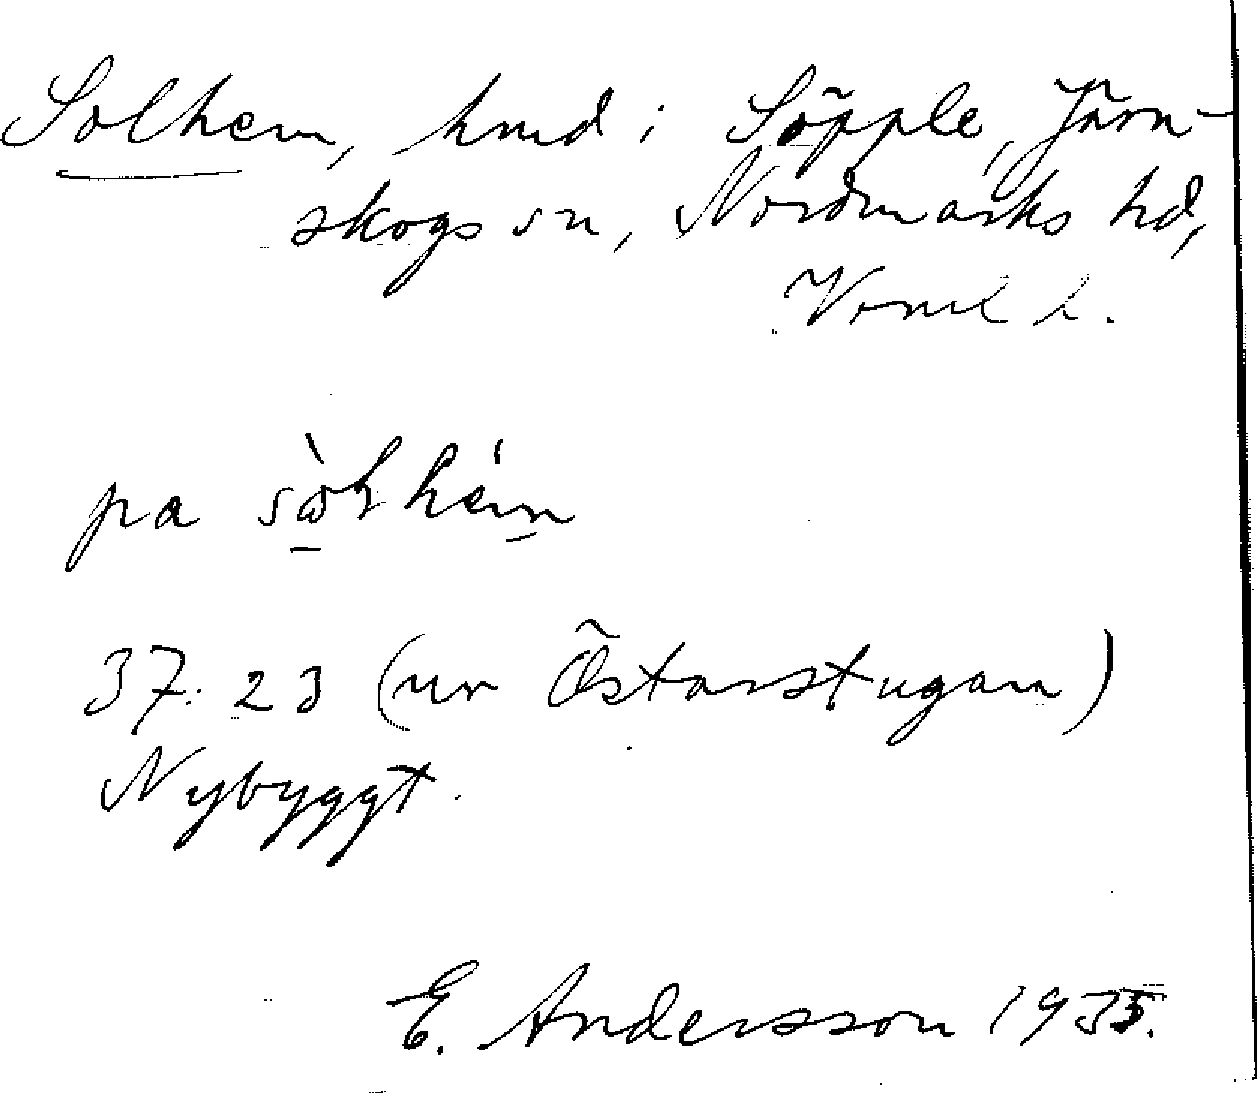 Solhem, hmd i Söpple, Järn-
skogs sn, Nordmarks hd,
Vrml l.
pa
37:23 (ur Östarstugan)
Nybyggt.
E. Andersson 1935.